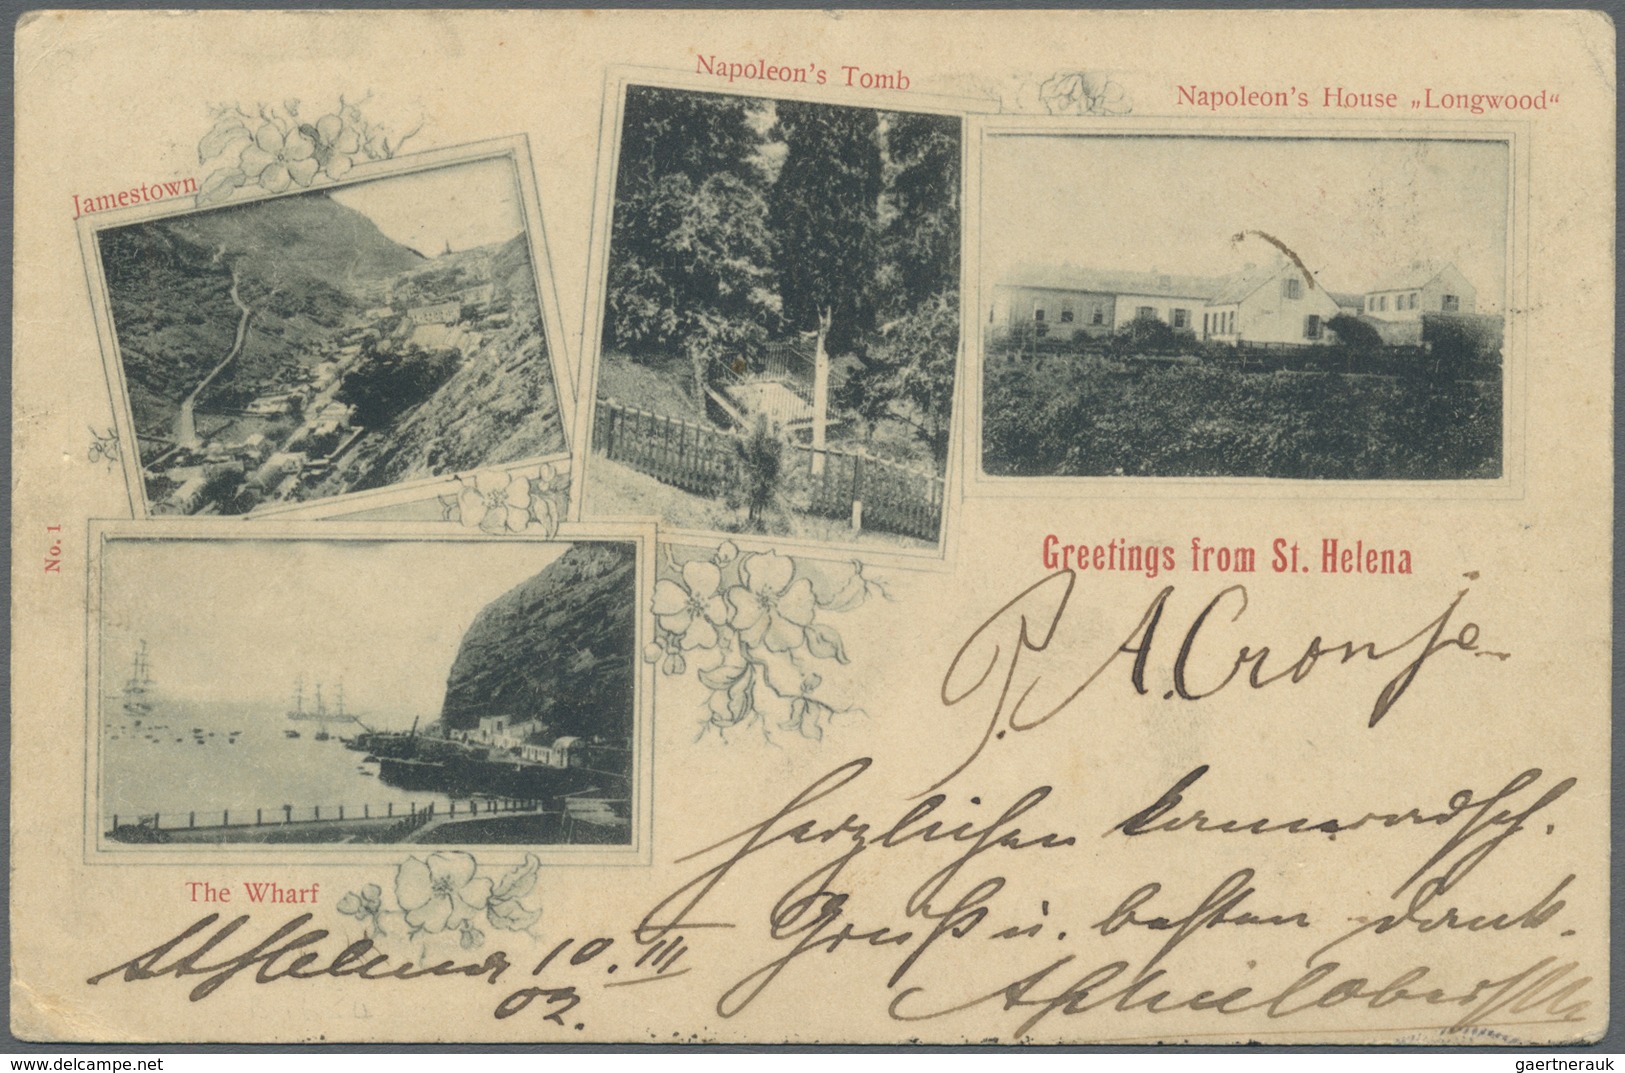 Napoleon's Tomb
Napoleon's House „Longwood“
Jamestown
No. 1
Greetings from St. Helena
P. A. Cronje
Herzlichen kameradsch.
Gruß u. besten Dank.
The Wharf
St Helena 10. III
02.
www.delcampe.net
gaertnerauk